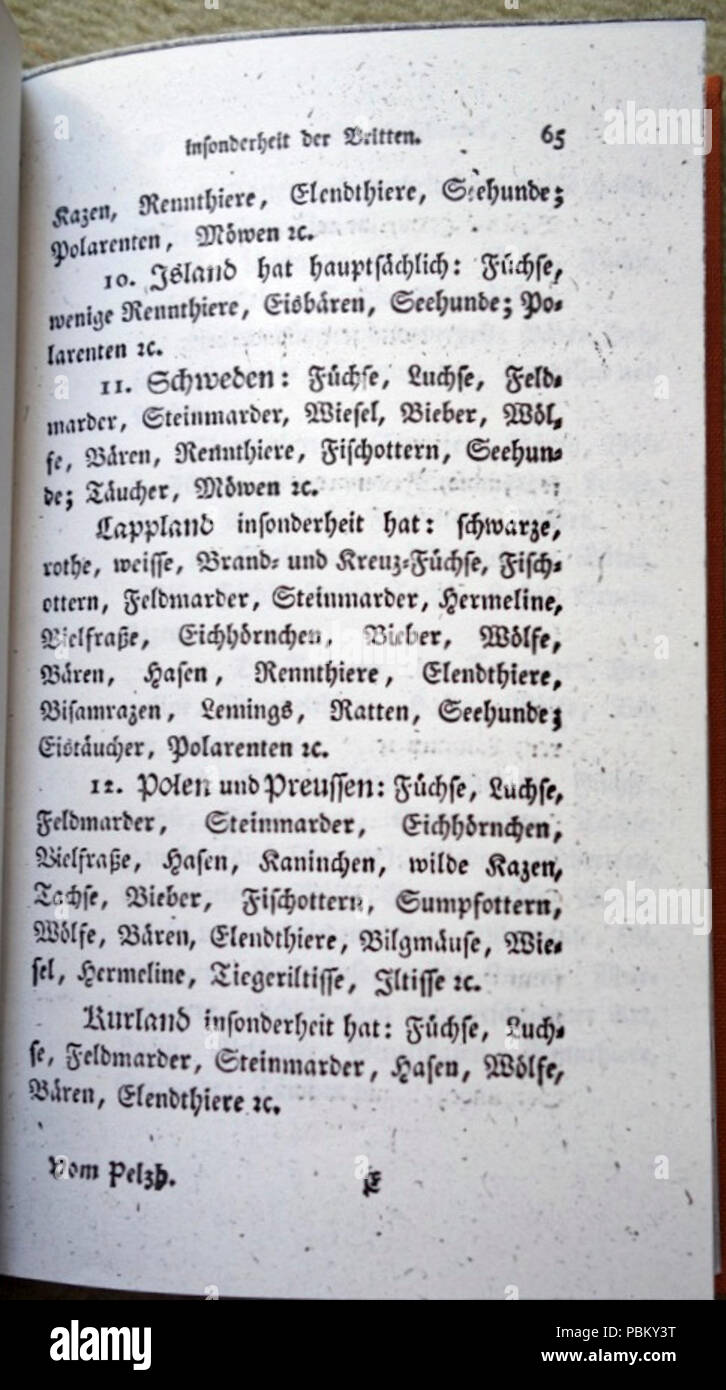 Insonderheit der Britten. 65
Kazen, Rennthiere, Elendthiere, Seehunde;
Polarenten, Möwen ꝛc.
10. Island hat hauptsächlich: Füchse,
wenige Rennthiere, Eisbären, Seehunde; Po-
larenten ꝛc.
11. Schweden: Füchse, Luchse, Feld-
marder, Steinmarder, Wiesel, Bieber, Wöl-
fe, Bären, Rennthiere, Fischottern, Seehun-
de; Täucher, Möwen ꝛc.
Lappland insonderheit hat: schwarze,
rothe, weisse, Brand- und Kreuz-Füchse, Fisch-
ottern, Feldmarder, Steinmarder, Hermeline,
Vielfraße, Eichhörnchen, Bieber, Wölfe,
Bären, Hasen, Rennthiere, Elendthiere,
Bisamrazen, Lemings, Ratten, Seehunde;
Eistäucher, Polarenten ꝛc.
12. Polen und Preussen: Füchse, Luchse,
Feldmarder, Steinmarder, Eichhörnchen,
Vielfraße, Hasen, Kaninchen, wilde Kazen,
Tachse, Bieber, Fischottern, Sumpfottern,
Wölfe, Bären, Elendthiere, Bilgmäuse, Wie-
sel, Hermeline, Tiegeriltisse, Iltisse ꝛc.
Kurland insonderheit hat: Füchse, Luch-
se, Feldmarder, Steinmarder, Hasen, Wölfe,
Bären, Elendthiere ꝛc.
Vom Pelzh. E
alamy
alamy
alamy
alamy
Image ID: PBKY3T
www.alamy.com